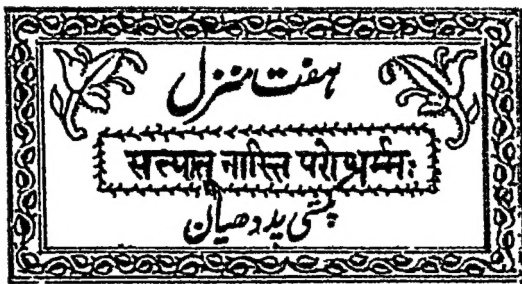 ہفت منزل
सत्यात् नास्ति परो धर्म्मः
پستی پد دھیان